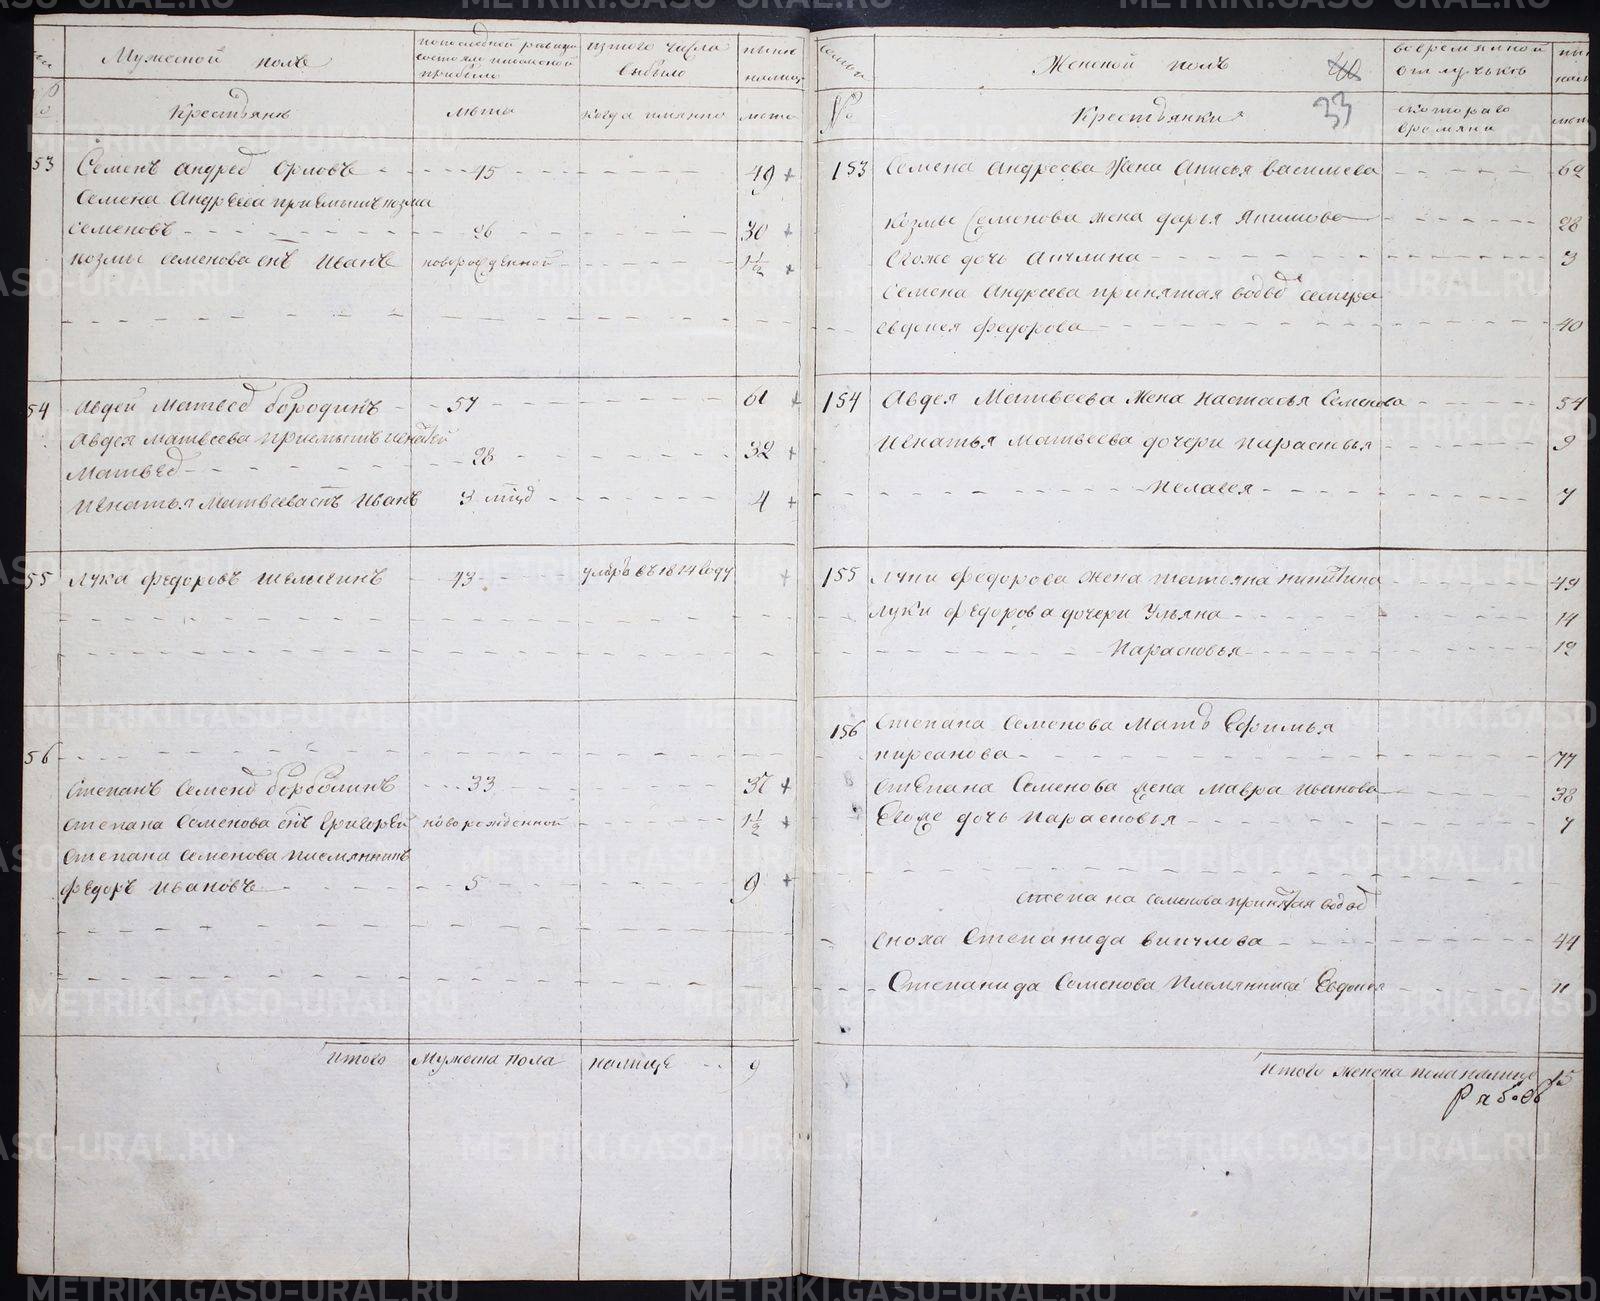 Мужеской полъ
попоследней ревизи состояло ипослесной прибыло
изтого числа выбыло
ныне налицо
№
Крестьянъ
лѣты
когда имянно
лѣта
53 Семенъ Андреѣ Орловъ 45 49 +
Семена Андрѣева приемышъ козма
Семеновъ 26 30 +
козмы Семенова снъ Иванъ новорожденной 1 1/2 +
54 Авдей Матвеѣ бородинъ 57 61 +
Авдея Матвеева приемышъ игнатей
Матвеѣ 28 32 +
игнатья Матвеева снъ Иванъ 3 мцѣ 4 +
55 лука федоровъ 43 умръ въ 1814 году +
56
Степанъ Семенѣ 33 37 +
Степана Семенова снъ Григорей новорожденной 1 1/2 +
Степана Семенова племянникъ
федоръ Ивановъ 5 9 +
итого Мужеска пола налице 9
Женской полъ
40
33
вовремянной отлучькѣ
№
Крестьянки
скотораго времяни
153 Семена Андреева Жена Анисья васильева 62
козмы Семенова жена дарья 28
Егоже дочь Акулина 3
Семена Андреева принятая
евдокея федорова 40
154 Авдея Матвеева жена настасья Семенова 54
игнатья Матвеева дочери парасковья 9
пелагея 7
155 луки федорова жена татьяна никитина 49
луки федорова дочери Ульяна 14
парасковья 12
156 Степана Семенова Мать Ефимья
кирсанова 77
Степана Семенова жена мавра иванова 38
Егоже дочь парасковья 7
Степана Семенова принятая
сноха Степанида викулова 44
Степанида Семенова племянница Евдокея 11
итого женска пола налице 15
Рябовъ
METRIKI.GASO-URAL.RU